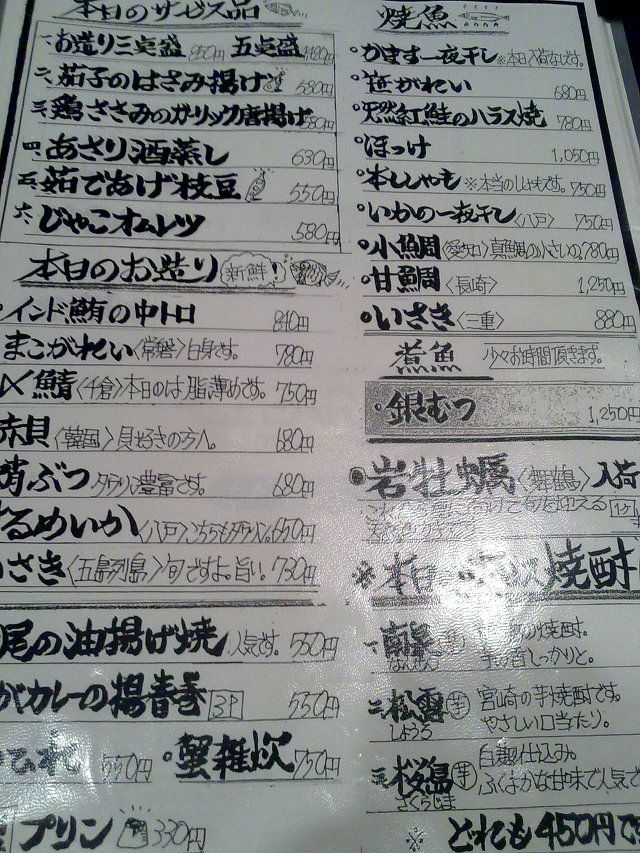 本日のサービス品
一、お造り三定盛 850円 五定盛
二、茄子のはさみ揚げ 580円
三、鶏ささみのガーリック唐揚げ 580円
四、あさり酒蒸し 630円
五、茹であげ枝豆 550円
六、じゃこオムレツ 580円
本日のお造り 新鮮!
インド鮪の中トロ 840円
まこがれい〈常磐〉白身です。 780円
〆鯖〈千倉〉本日のは脂薄めです。 750円
赤貝〈韓国〉貝好きの方へ。 680円
蛸ぶつ タウリン豊富です。 680円
するめいか〈八戸〉こちらもタウリン。 650円
いさき〈五島列島〉旬ですよ。旨い。 730円
尾の油揚げ焼 人気です。 550円
がカレーの揚春巻 3P 550円
ひれ 550円 ・蟹雑炊 750円
プリン 330円
焼魚
・かます一夜干し ※本日入荷なしです。
・笹がれい 680円
・天然紅鮭のハラス焼 780円
・ほっけ 1,050円
・本ししゃも ※本当のししゃもです。 750円
・いかの一夜干し〈八戸〉 750円
・小鯛〈愛知〉真鯛の小さいの 780円
・甘鯛〈長崎〉 1,250円
・いさき〈三重〉 880円
煮魚 少々お時間頂きます。
・銀むつ 1,250円
岩牡蠣〈舞鶴〉入荷
※本日 焼酎
一、 の焼酎。
しっかりと。
二、松露 芋 宮崎の芋焼酎です。
しょうろ やさしい口当たり。
三、桜島 芋 白麹仕込み。
さくらじま ふくよかな甘味で人気で
※ どれも450円で